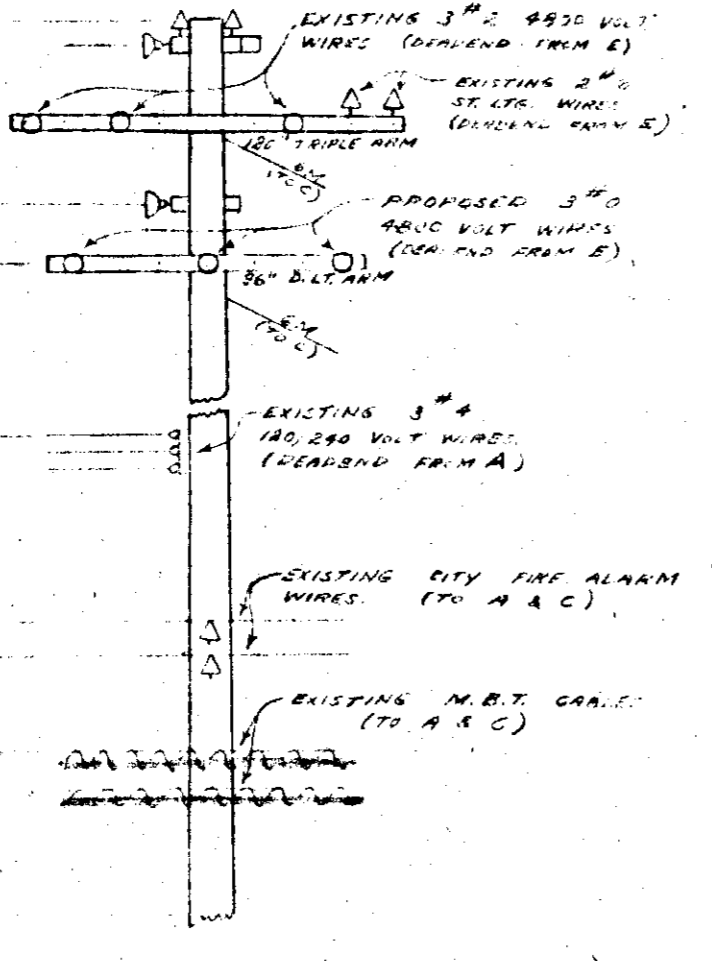 EXISTING 3 #2 4800 VOLT
WIRES (DEADEND FROM E)
EXISTING 2 #0
ST. LTG. WIRES
(DEADEND FROM E)
120" TRIPLE ARM
6M
(TO C)
PROPOSED 3 #0
4800 VOLT WIRES
(DEADEND FROM E)
96" D.L.T. ARM
6M
(TO C)
EXISTING 3 #4
120/240 VOLT WIRES
(DEADEND FROM A)
EXISTING CITY FIRE ALARM
WIRES. (TO A & C)
EXISTING M.B.T. CABLES
(TO A & C)